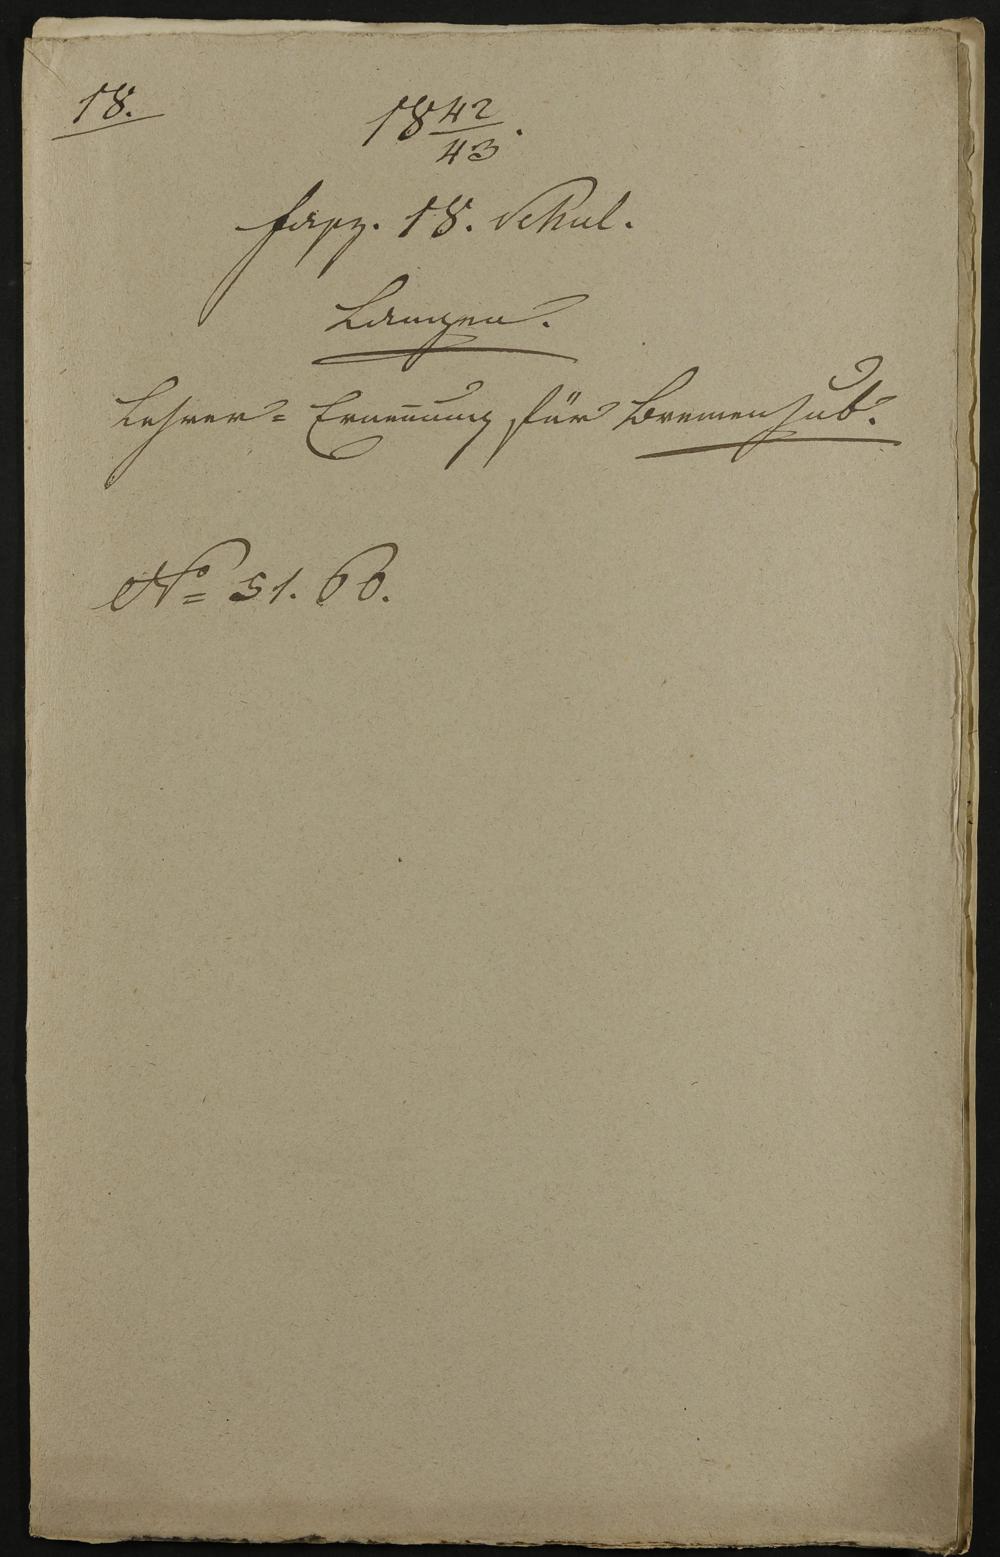 18.
18 42/43.
Fasz. 18. Schul.
Langen.
Lehrer= Ernennung für Bremenhub.
No 51. 60.